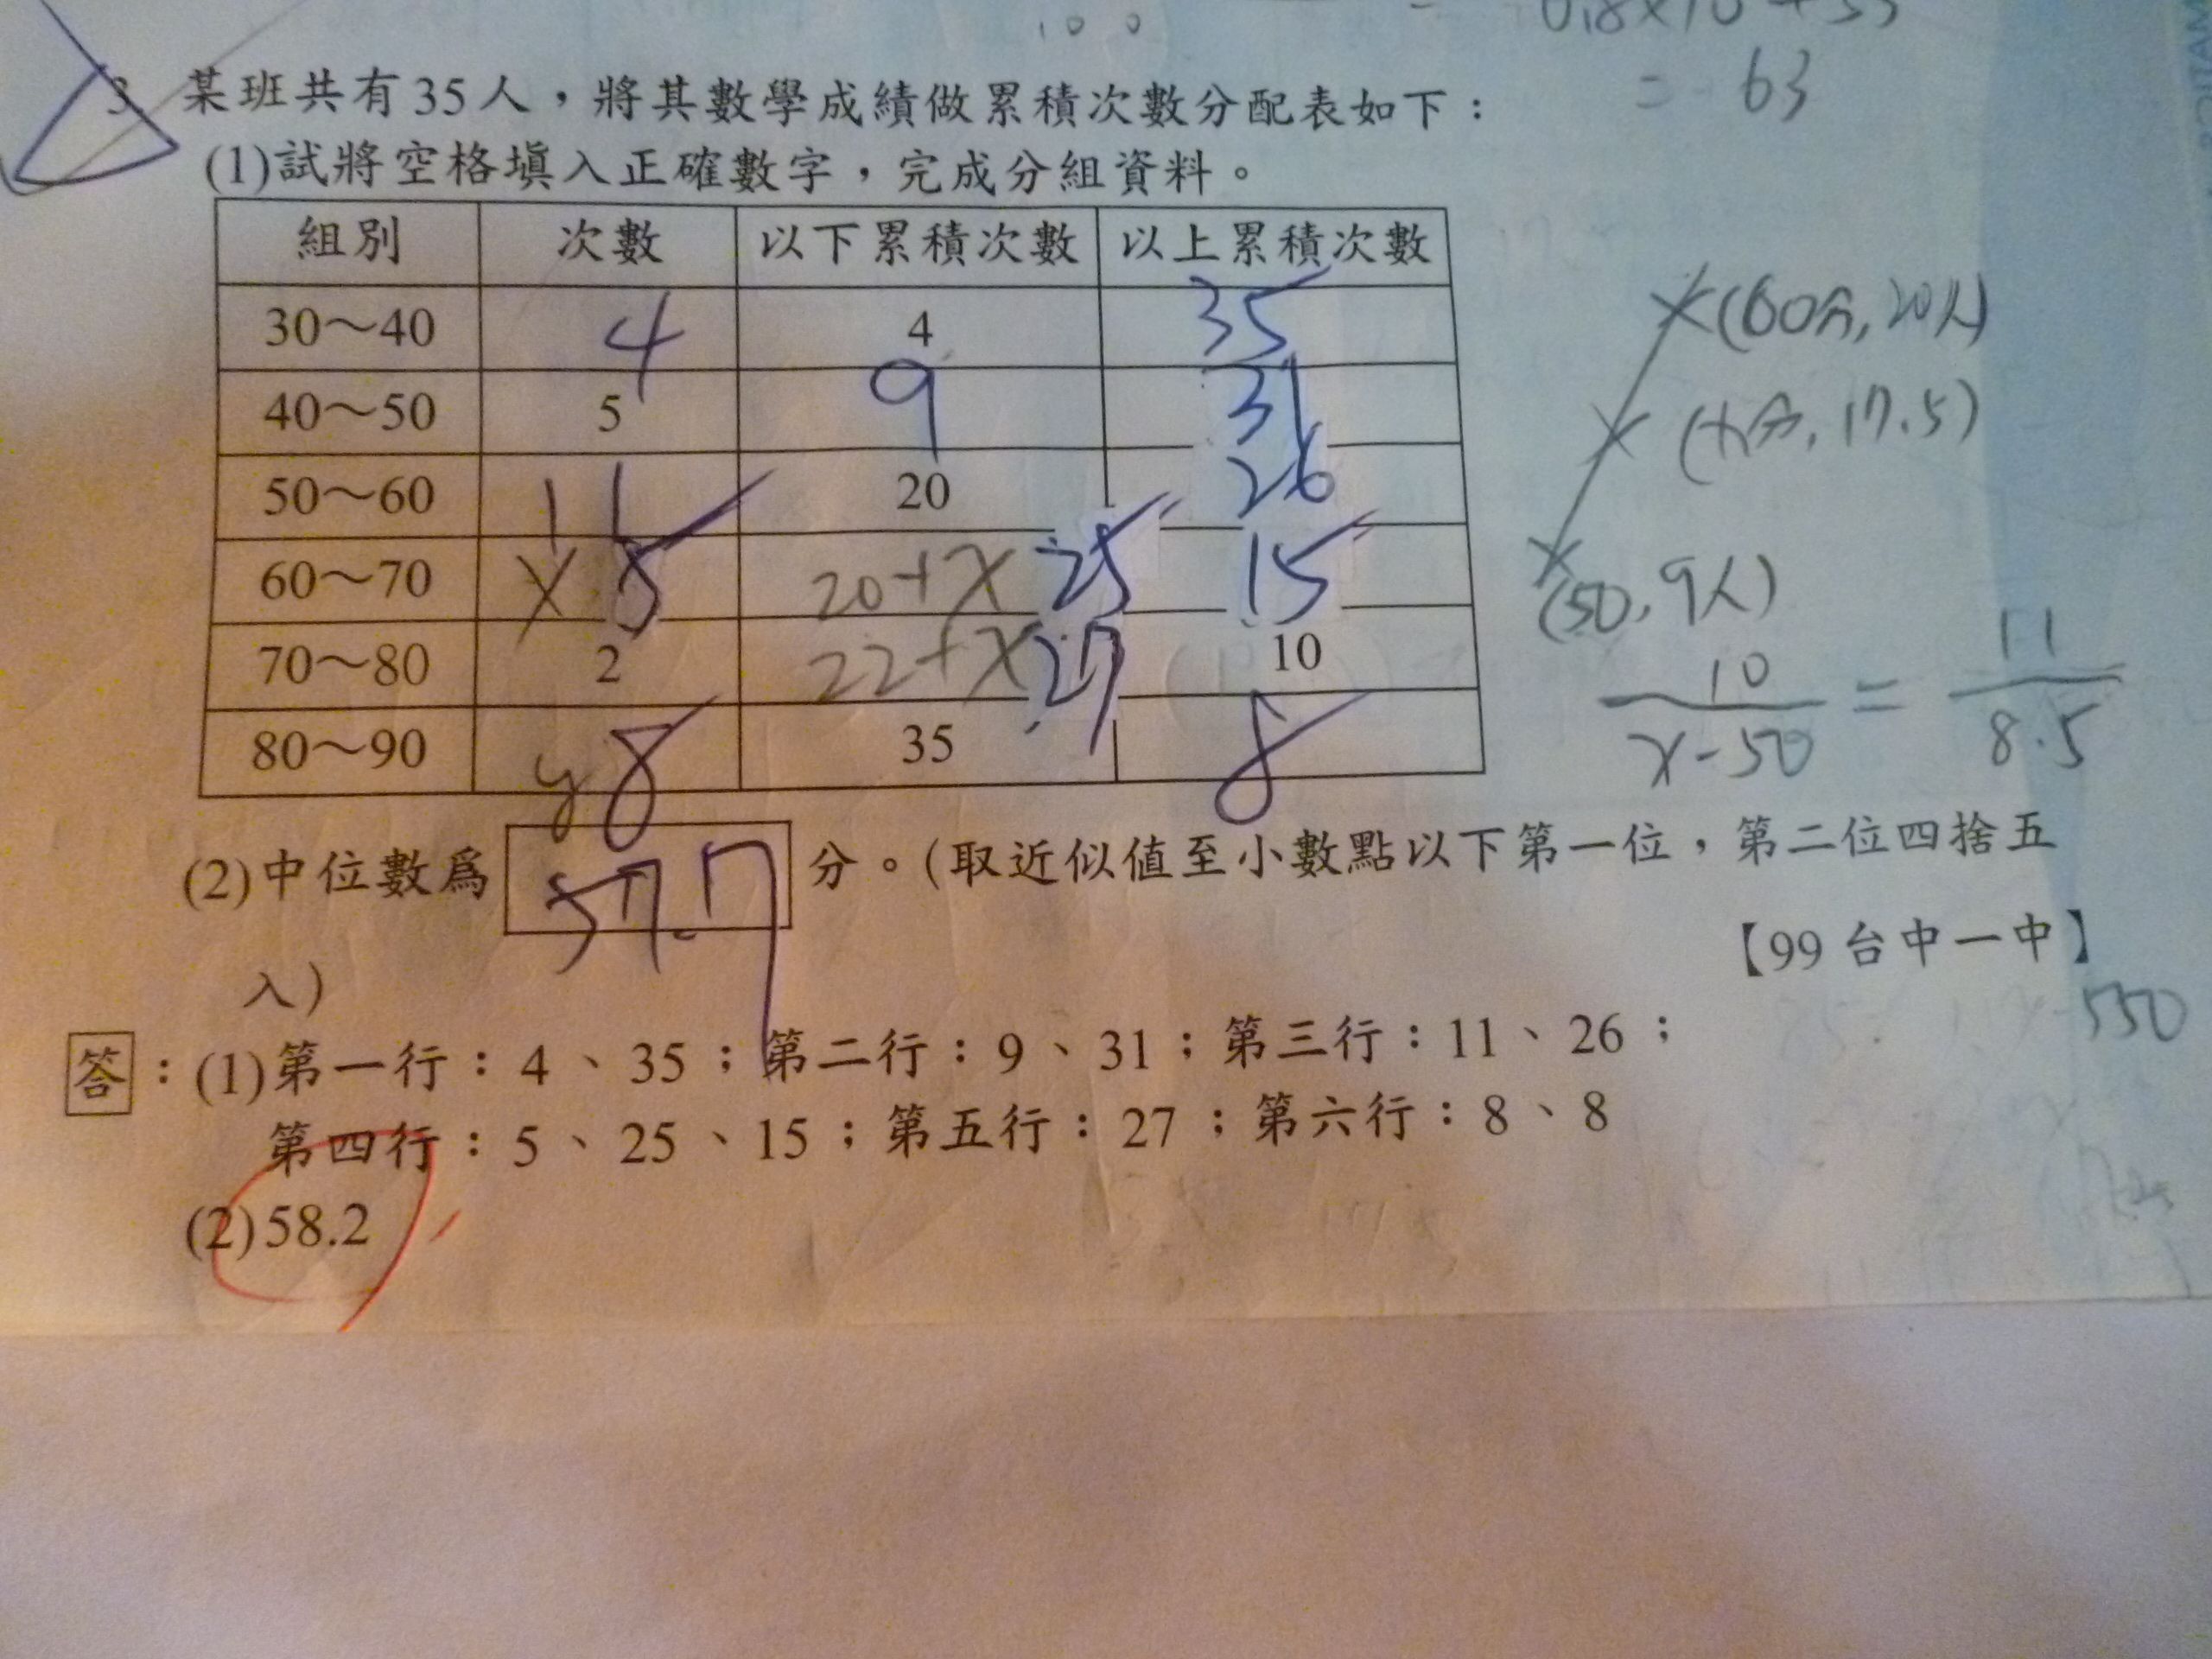 = 63
3. 某班共有35人，將其數學成績做累積次數分配表如下：
(1)試將空格填入正確數字，完成分組資料。
組別 次數 以下累積次數 以上累積次數
30～40 4 4 35
40～50 5 9 31
50～60 11 20 26
60～70 x 5 20+x 25 15
70～80 2 22+x 27 10
80～90 y 8 35 8
(60分, 20人)
(x分, 17.5)
(50, 9人)
10/x-50 = 11/8.5
(2)中位數爲 57.7 分。(取近似值至小數點以下第一位，第二位四捨五
入)
【99 台中一中】
550
答：(1)第一行：4、35；第二行：9、31；第三行：11、26；
第四行：5、25、15；第五行：27；第六行：8、8
(2)58.2